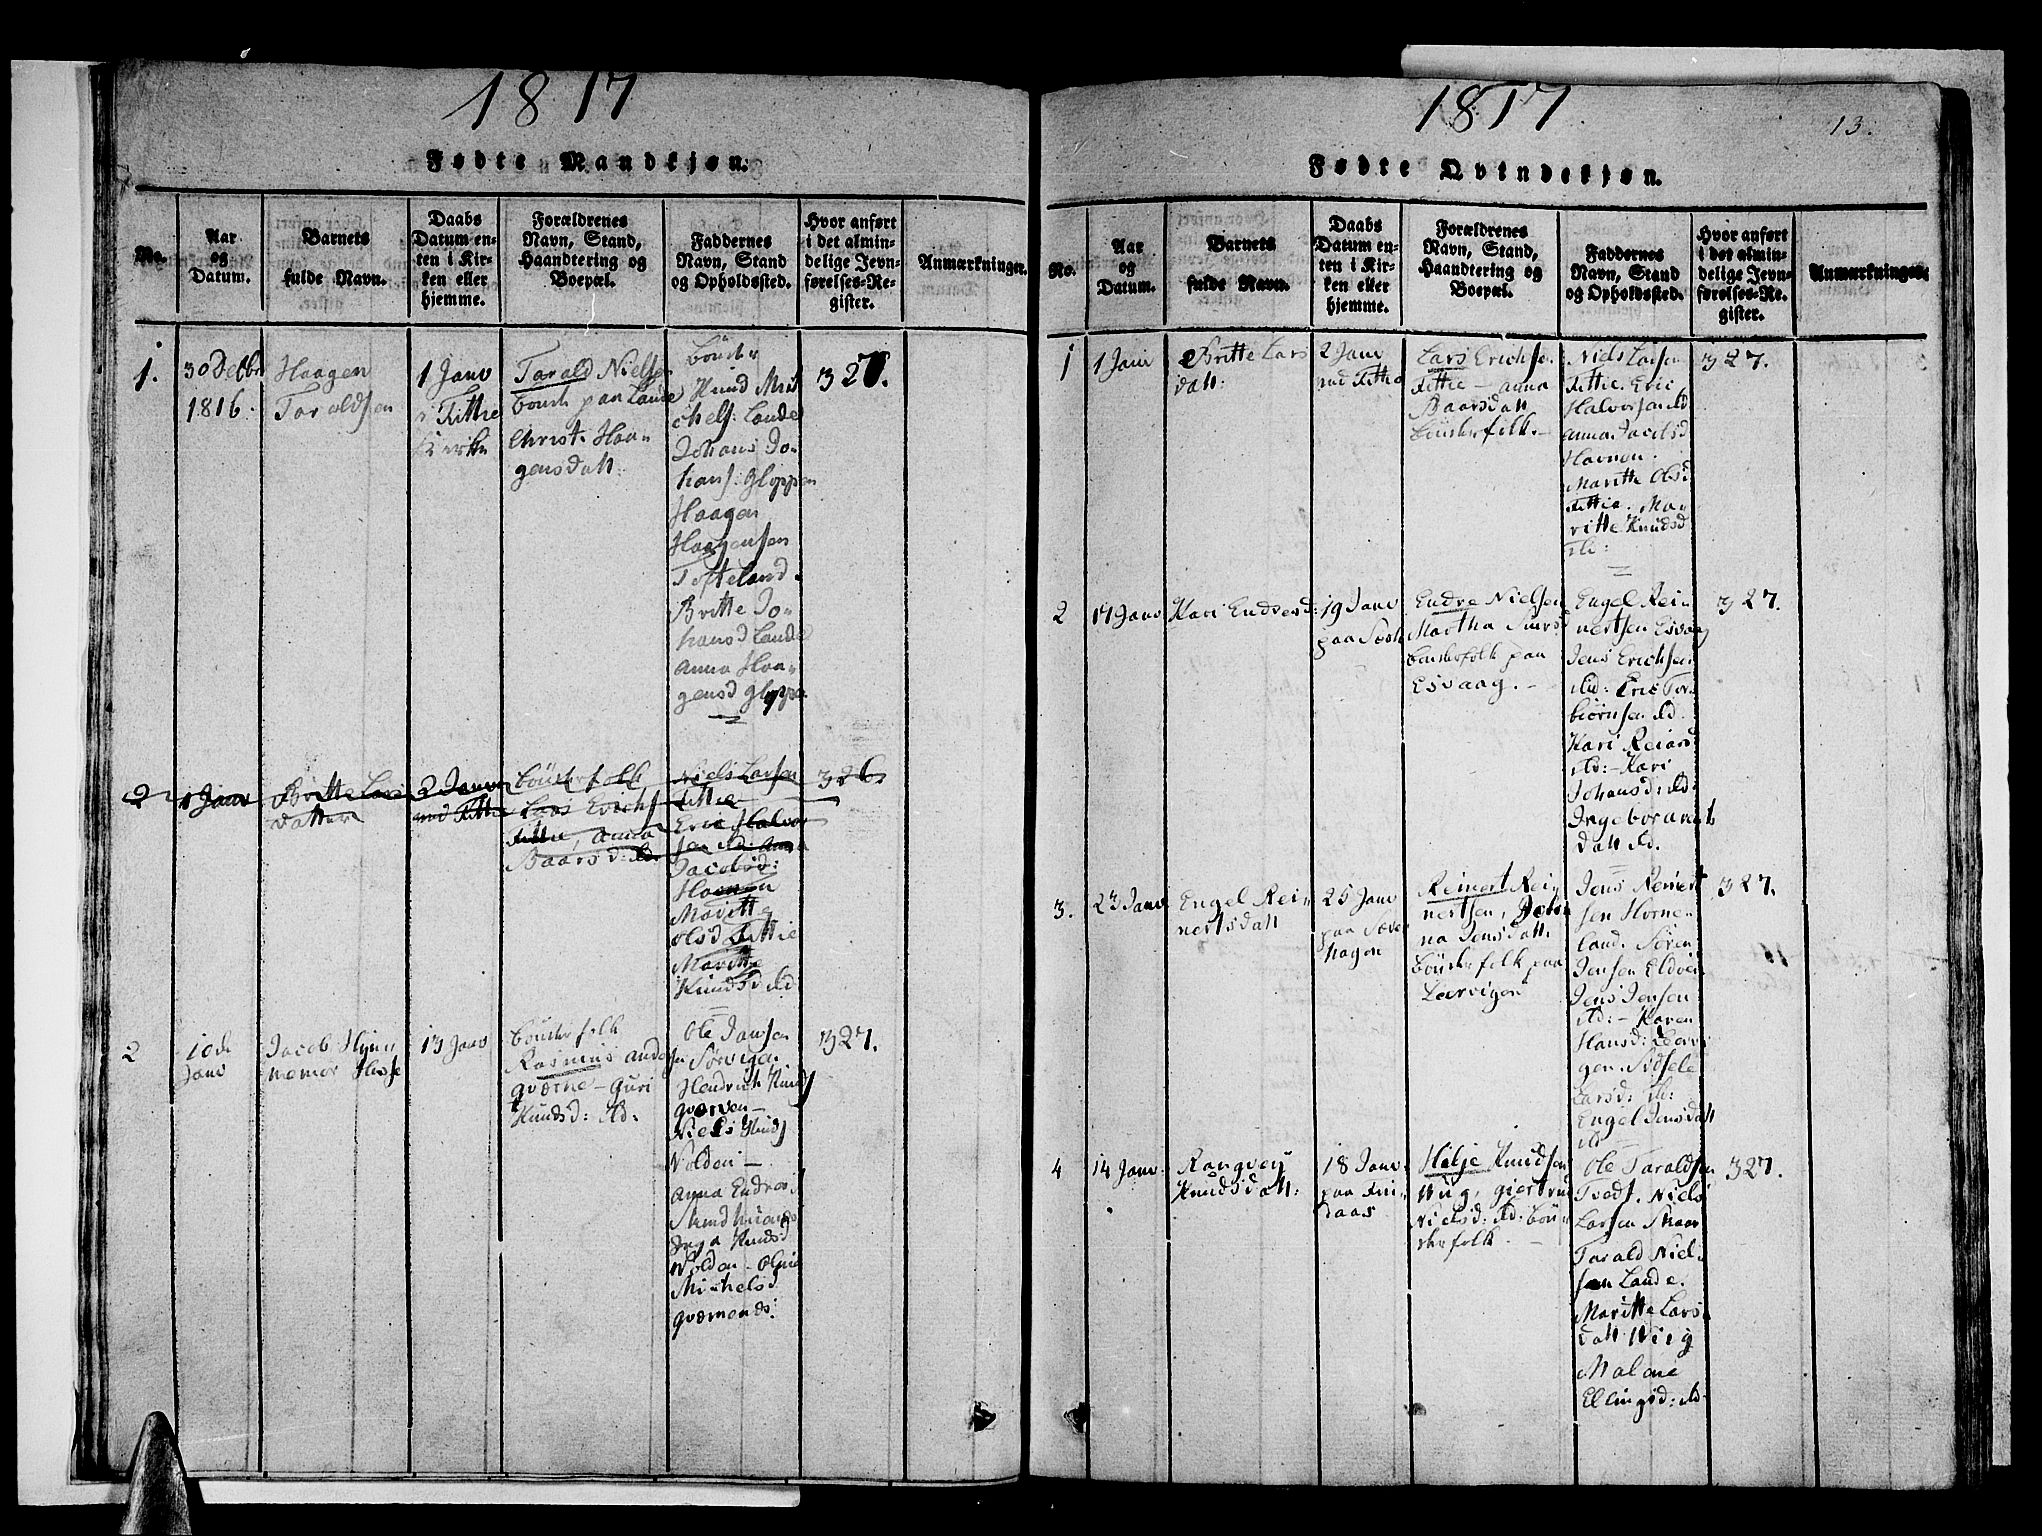 1817
Fødte Mandkjøn.
No.
Aar
og
Datum.
Barnets
fulde Navn.
Daabs
Datum en-
ten i Kir-
ken eller
hjemme.
Forældrenes
Navn, Stand,
Haandtering og
Boepæl.
Faddernes
Navn, Stand
og Opholdssted.
Hvor anført
i det almin-
delige Jevn-
førelses-Re-
gister.
Anmærkninger.
1.
30 Decbr
1816.
Haagen
Taraldsen
1 Janv
i Fittie
Kirke
Tarald Nielsen
bonde paa Lande
Christi Haa-
gensdatt:
Knud Mi-
chels: Lande
Johans Jo-
hans: Gloppen
Haagen
Haagensen
Tofteland.
Britte Jo-
hansd Lande
Anna Haa-
gensd Gloppe
327.
2
1 Janv
Britte Lars
datter
2 Janv
ved Fittie
bønderfolk
Lars Erichs
Fittie, Anna
Baarsd: ibd
Niels Larsen
Fittie
Eric Halvor
sen ibd: Anna
Jacobsd:
Havnen
Maritte
Olsd Fittie
Maritte
Knudsd ibd
326.
2
10de
Janv
Jacob Hynn
Hesse
13 Janv
bønderfolk
Rasmus Anders
Qværne - Guri
Knudsd: ibd.
Ole Jansen
Sørvigen
Hendrich Knuds
Qværven -
Niels Knuds
Volden -
Anna Endres
Inga Knudsd
Volden - Oline
Michelsd
327.
1817
13.
Fødte Qvindekjøn.
No.
Aar
og
Datum.
Barnets
fulde Navn.
Daabs
Datum en-
ten i Kir-
ken eller
hjemme.
Forældrenes
Navn, Stand,
Haandtering og
Boepæl.
Faddernes
Navn, Stand
og Opholdssted.
Hvor anført
i det almin-
delige Jevn-
førelses-Re-
gister.
Anmærkninger.
1
1 Janv
Britte Lars
datt:
2 Janv
ved Fittie
Lars Erichsen
Fittie - Anna
Baarsdatt
bønderfolk. -
Niels Larsen
Fittie. Eric
Halvorsen ibd
Anna Jacobsd
Havnen.
Maritte Olsd:
Fittie. Ma-
ritte Knudsd
ib:
327.
2
17 Janv
Kari Endresd:
19 Janv
paa
Endre Nielsen
Martha
bønderfolk paa
Esvaag. -
Engel Rei-
nertsen Esvaag
Jens Erichsen
ibd: Eric Tor-
biørnsen ibd.
Kari Reiarsd
ibd: - Kari
Johansd: ibd:
Ingebor
datt ibd.
327.
3.
23 Janv
Engel Rei-
nertsdatt
25 Janv
paa Sæve-
hagen
Reinert Rei-
nertsen,
na Jensdatt.
bønderfolk paa
Lærvigen
Jens Reinert
sen Horne-
land. Søren
Jensen Eldøen
Jens Jensen
ibd: - Karen
Hansd: Lærvi-
gen. Sidsele
Larsd: ib:
Engel Jensdatt
ibd
327.
4
14 Janv.
Rangvey
Knudsdatt:
18 Janv.
paa Fin-
daas
Helje Knudsen
Wug, Giertrud
Nielsd: ibd: bøn-
derfolk. -
Ole Taraldsen
Tvedt. Niels
Larsen Skaar
Tarald Niel-
sen Lande.
Maritte Lars
datt Wiig
Malene
Ellingsd: ibd
327.